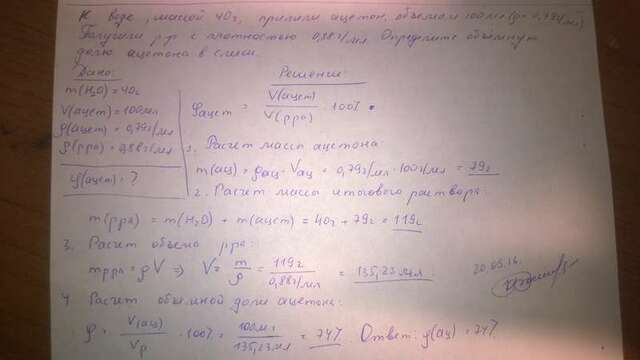 К воде, массой 40г, прилили ацетон, объемом 100мл (ρ = 0,79г/мл)
Получили р-р с плотностью 0,88г/мл. Определите объемную
долю ацетона в смеси.
Дано:
m(H₂O) = 40г
V(ацет) = 100мл
ρ(ацет) = 0,79г/мл
ρ(рра) = 0,88г/мл
φ(ацет) - ?
Решение:
φацет = V(ацет)/V(рра) · 100%
1. Расчет массы ацетона:
m(ац) = ρац · Vац = 0,79г/мл · 100мл = 79г
2. Расчет массы итогового раствора:
m(рра) = m(H₂O) + m(ацет) = 40г + 79г = 119г
3. Расчет объема рра:
mрра = ρV ⇒ V = m/ρ = 119г/0,88г/мл = 135,23мл
4 Расчет объемной доли ацетона:
φ = V(ац)/Vр · 100% = 100мл/135,23мл = 74% Ответ: φ(ац) = 74%
20.05.16.